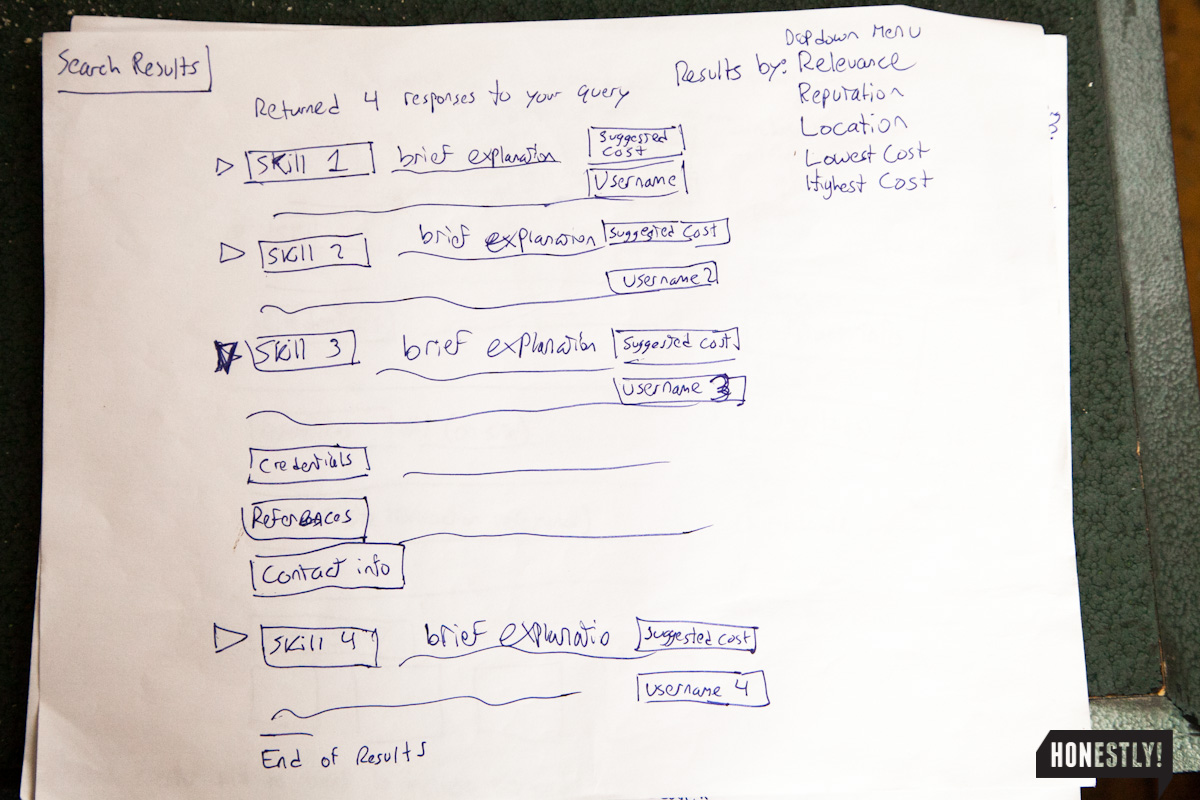 Search Results
Dropdown Menu
Results by: Relevance
Reputation
Location
Lowest Cost
Highest Cost
?
Returned 4 responses to your query
Skill 1 brief explanation Suggested Cost
Username
Skill 2 brief explanation Suggested Cost
Username 2
Skill 3 brief explanation Suggested Cost
Username 3
Credentials
References
Contact info
Skill 4 brief explanatio Suggested Cost
Username 4
End of Results
HONESTLY!